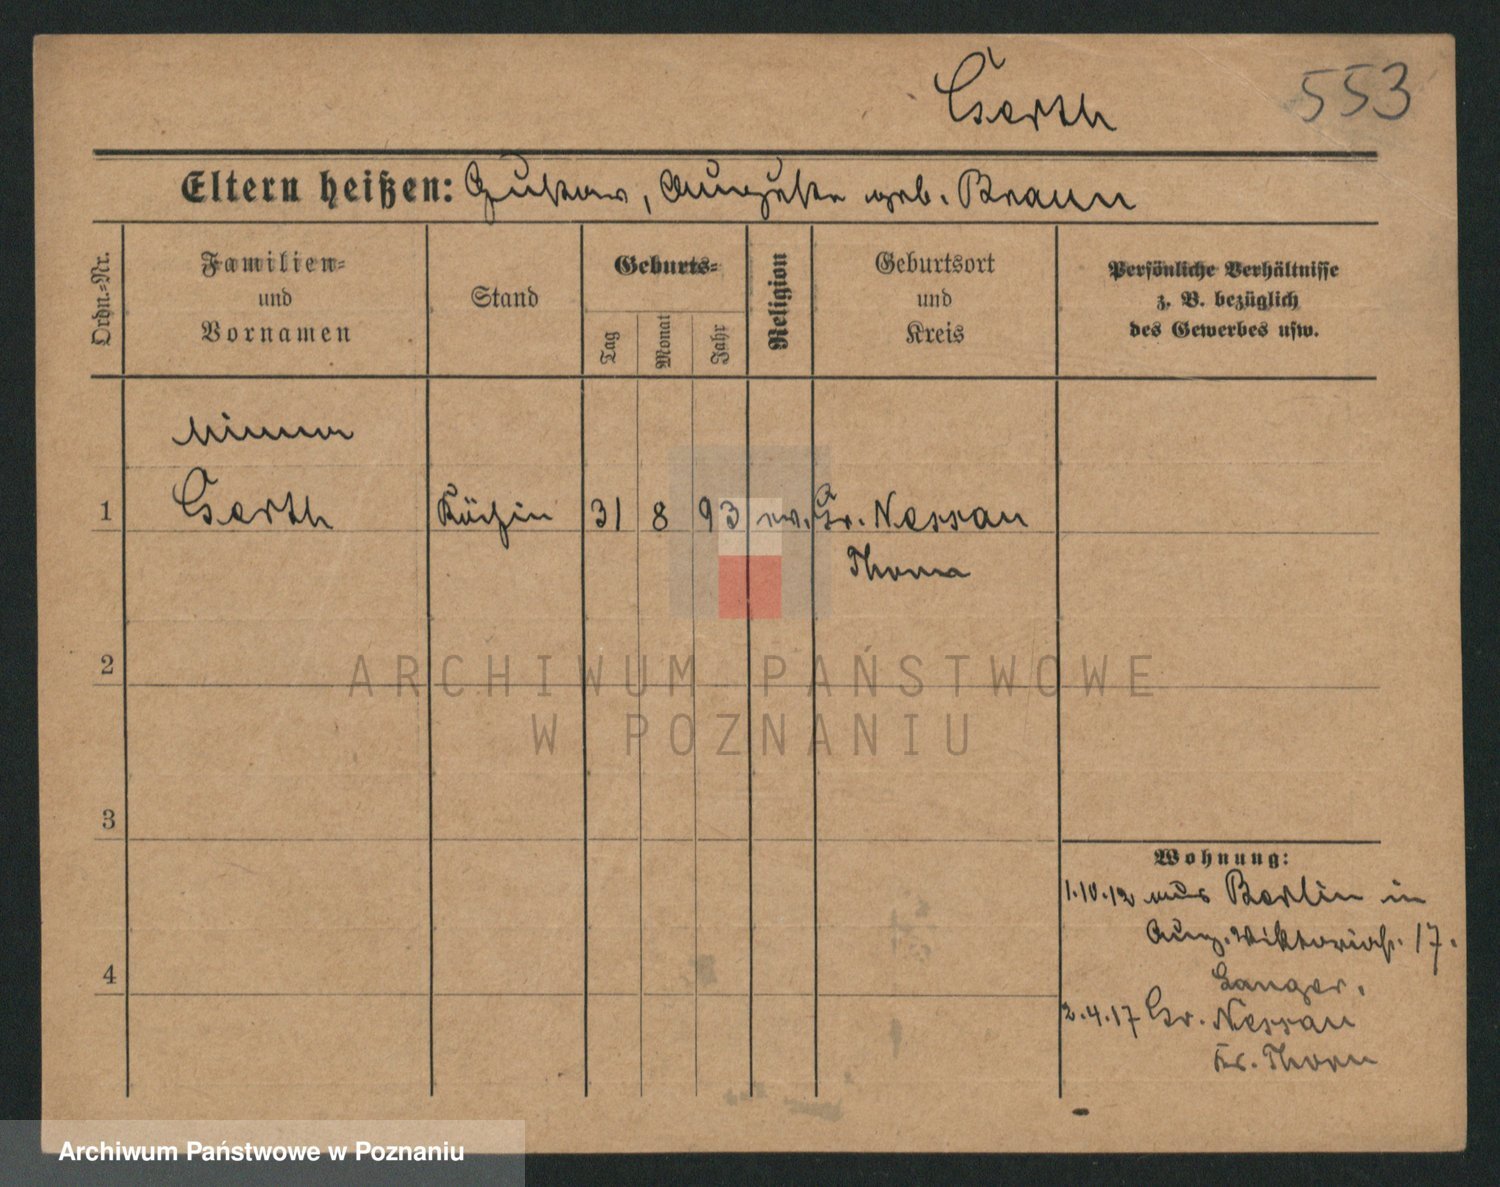 Gerth
553
Eltern heißen: Gustav, Auguste geb. Braun
Ordn.-Nr.
Familien-
und
Vornamen
Stand
Geburts-
Tag
Monat
Jahr
Religion
Geburtsort
und
Kreis
Persönliche Verhältnisse
z. B. bezüglich
des Gewerbes usw.
Minna
1 Gerth Köchin 31 8 93 ev. Gr. Nessau
Thorn
2
3
4
Wohnung:
1.10.12 aus Berlin in
Aug. Viktoriastr. 17.
Langer.
2.4.17 Gr. Nessau
Kr. Thorn
ARCHIWUM PAŃSTWOWE
W POZNANIU
Archiwum Państwowe w Poznaniu